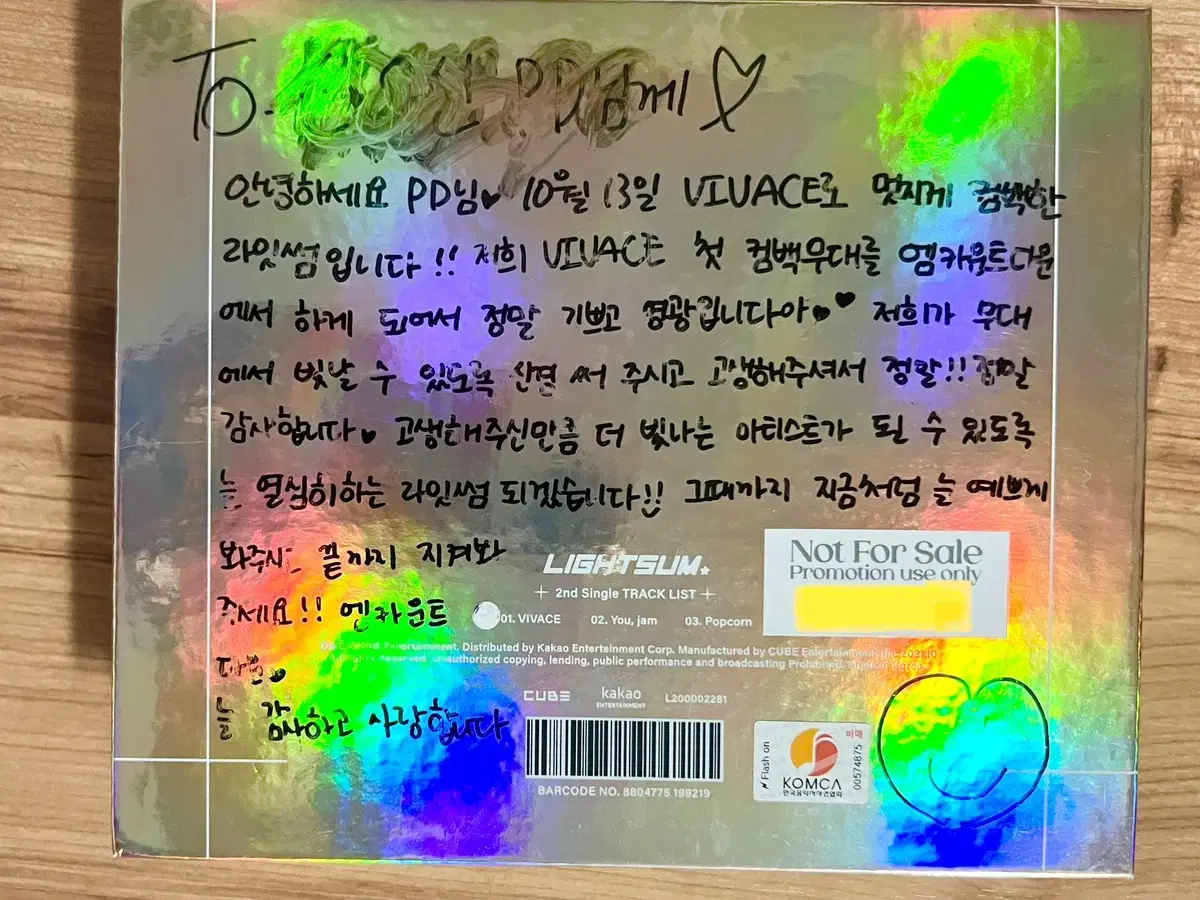 To. PD님께
안녕하세요 PD님 10월 13일 VIVACE로 멋지게 컴백한
라잇썸입니다!! 저희 VIVACE 첫 컴백무대를 엠카운트다운
에서 하게 되어서 정말 기쁘고 영광입니다아 저희가 무대
에서 빛날 수 있도록 신경 써 주시고 고생해주셔서 정말!! 정말
감사합니다 고생해주신만큼 더 빛나는 아티스트가 될 수 있도록
늘 열심히하는 라잇썸 되겠습니다!! 그때까지 지금처럼 늘 예쁘게
봐주시 끝까지 지켜봐
주세요!! 엠카운트
다운
늘 감사하고 사랑합니다
LIGHTSUM
2nd Single TRACK LIST
01. VIVACE 02. You, jam 03. Popcorn
Distributed by Kakao Entertainment Corp. Manufactured by CUBE Entertainment
unauthorized copying, lending, public performance and broadcasting Prohibited.
CUBE kakao ENTERTAINMENT L200002281
BARCODE NO. 8804775 199219
Not For Sale
Promotion use only
Flash on
KOMCA
한국음악저작권협회
비매
00574875